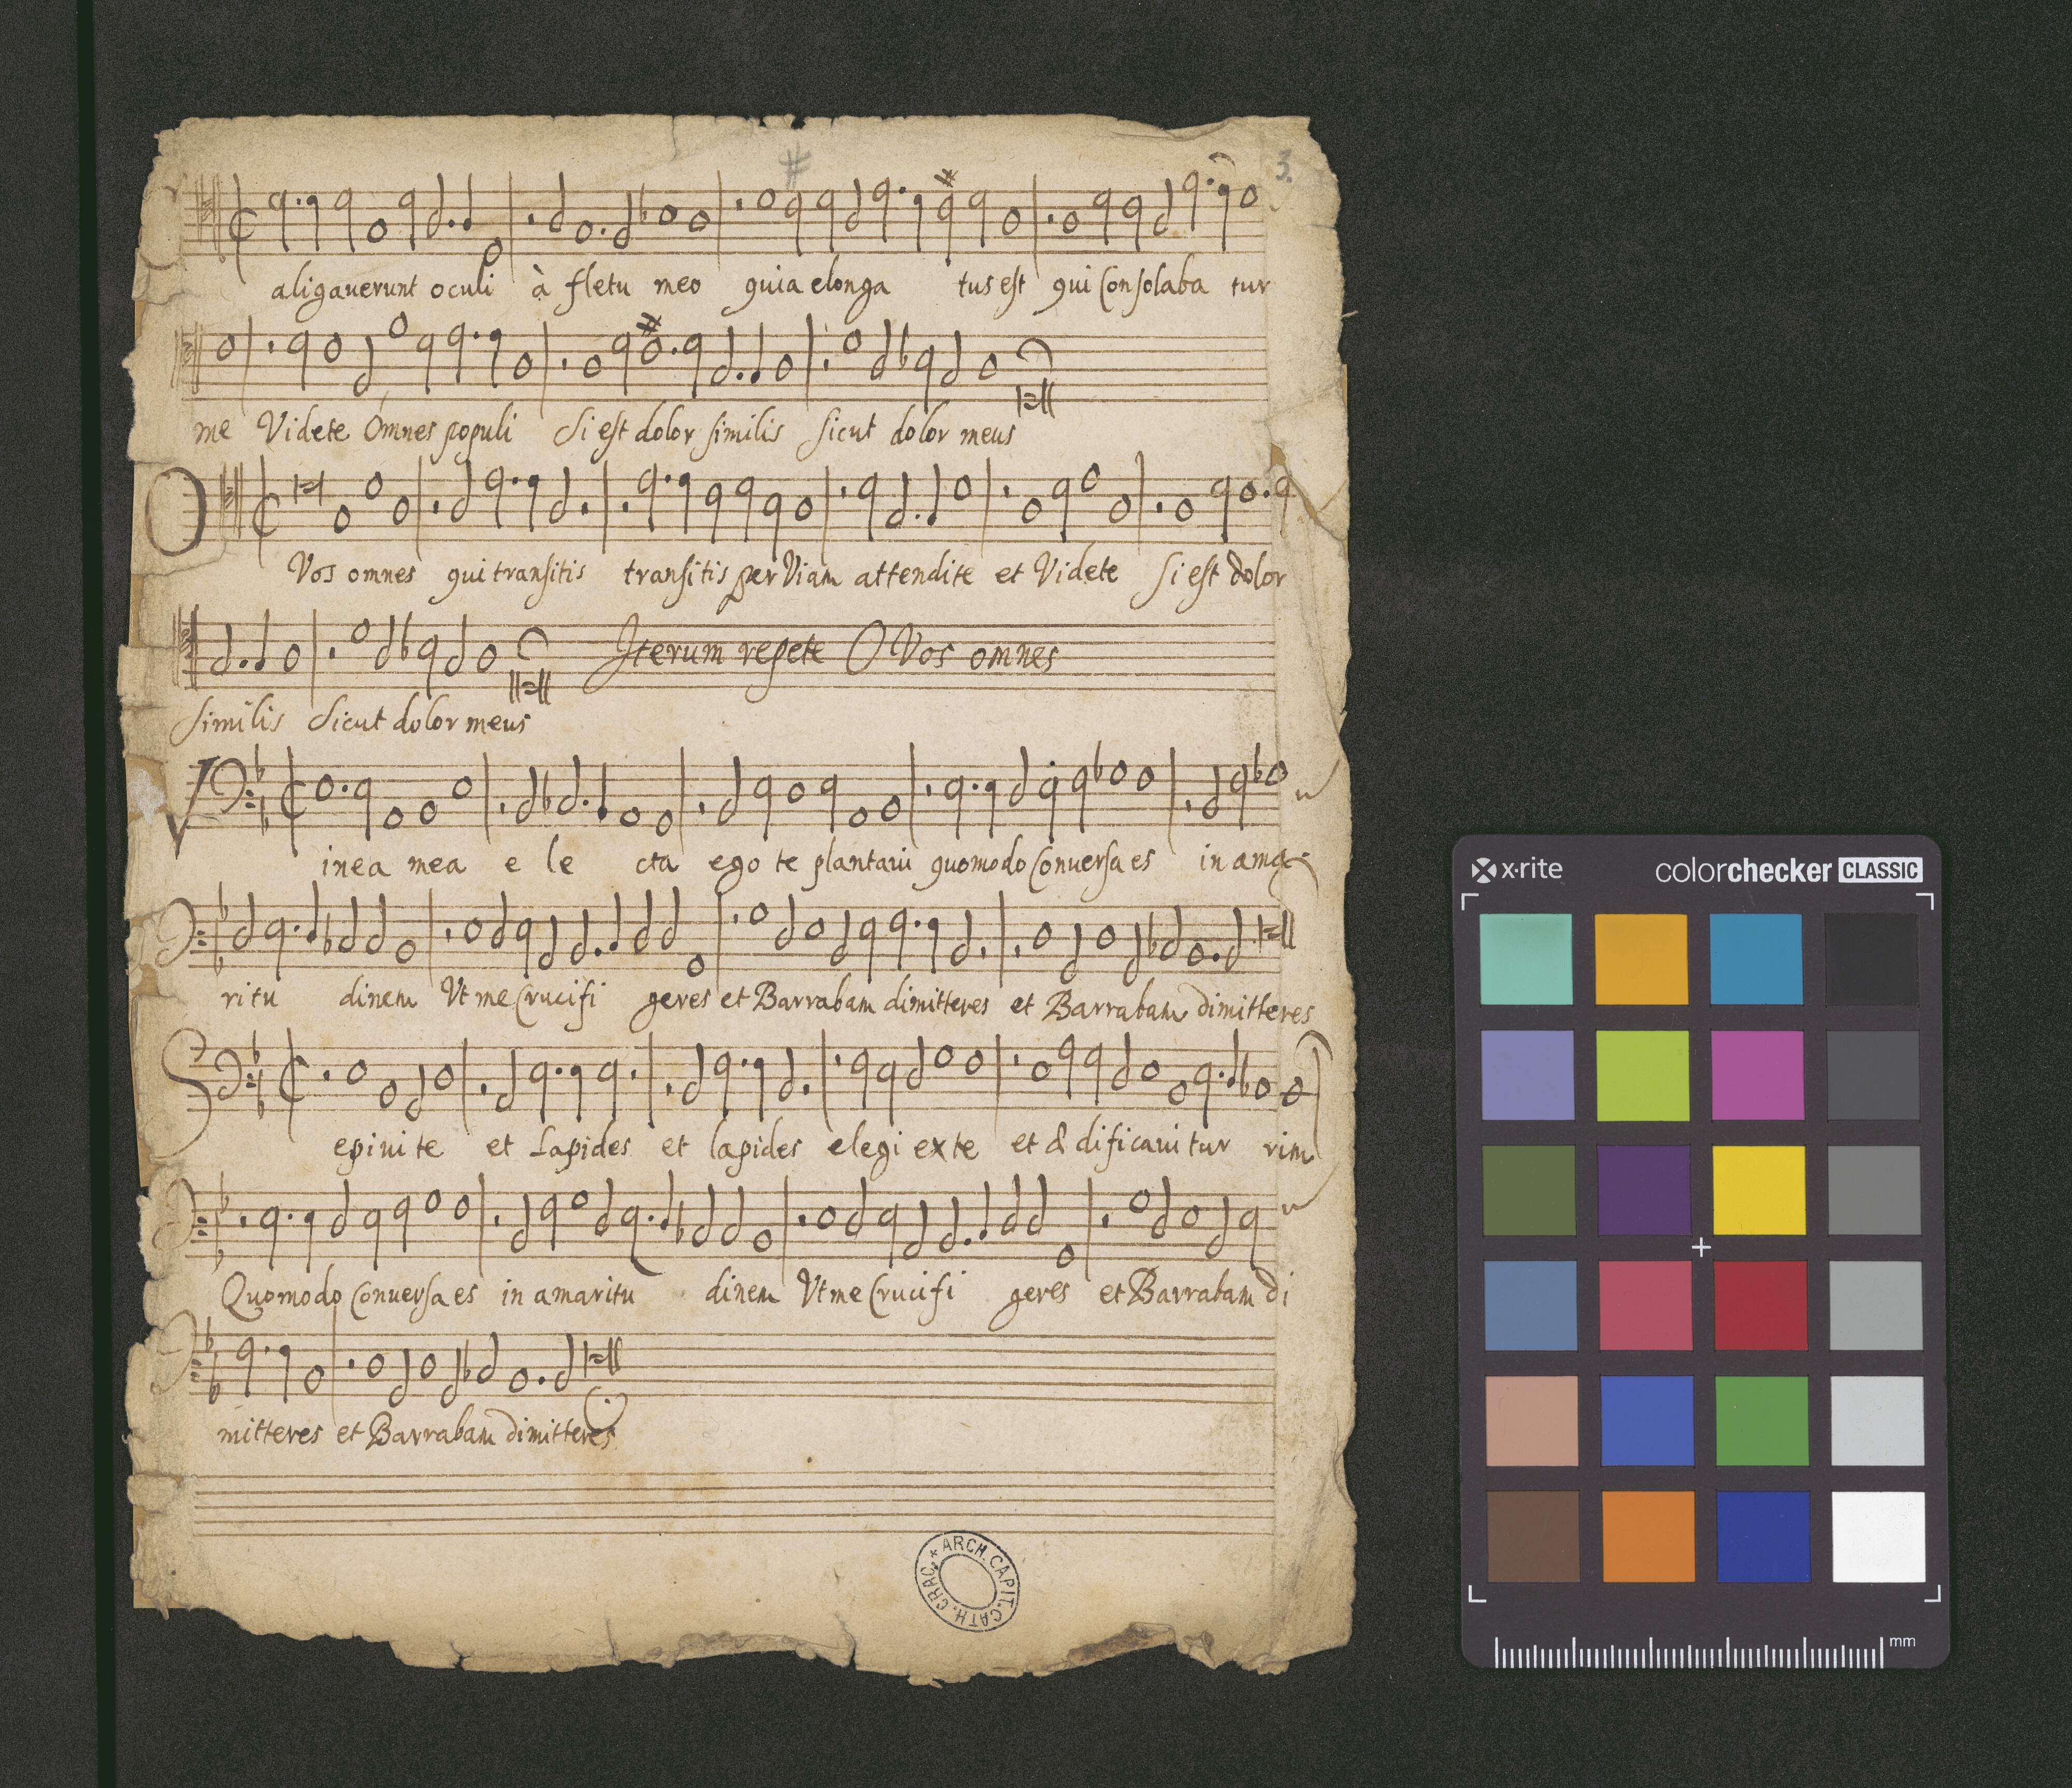 3.
Caligauerunt oculi à fletu meo quia elonga tus est qui Consolaba tur
me Videte Omnes populi Si est dolor similis sicut dolor meus
O Vos omnes qui transitis transitis per Viam attendite et Videte si est dolor
Iterum repete O Vos omnes
Similis Sicut dolor meus
Vinea mea e le cta ego te plantaui quomodo Conuersa es in ama
ritu dinem Vt me Crucifi geres et Barrabam dimitteres et Barrabam dimitteres
Sepiui te et Lapides et lapides elegi ex te et & dificaui tur rim
Quomodo Conuersa es in amaritu dinem Vt me Crucifi geres et Barrabam di
mitteres et Barrabam dimitteres
ARCH. CAPIT. CATH. CRAC. *
x·rite colorchecker CLASSIC
mm